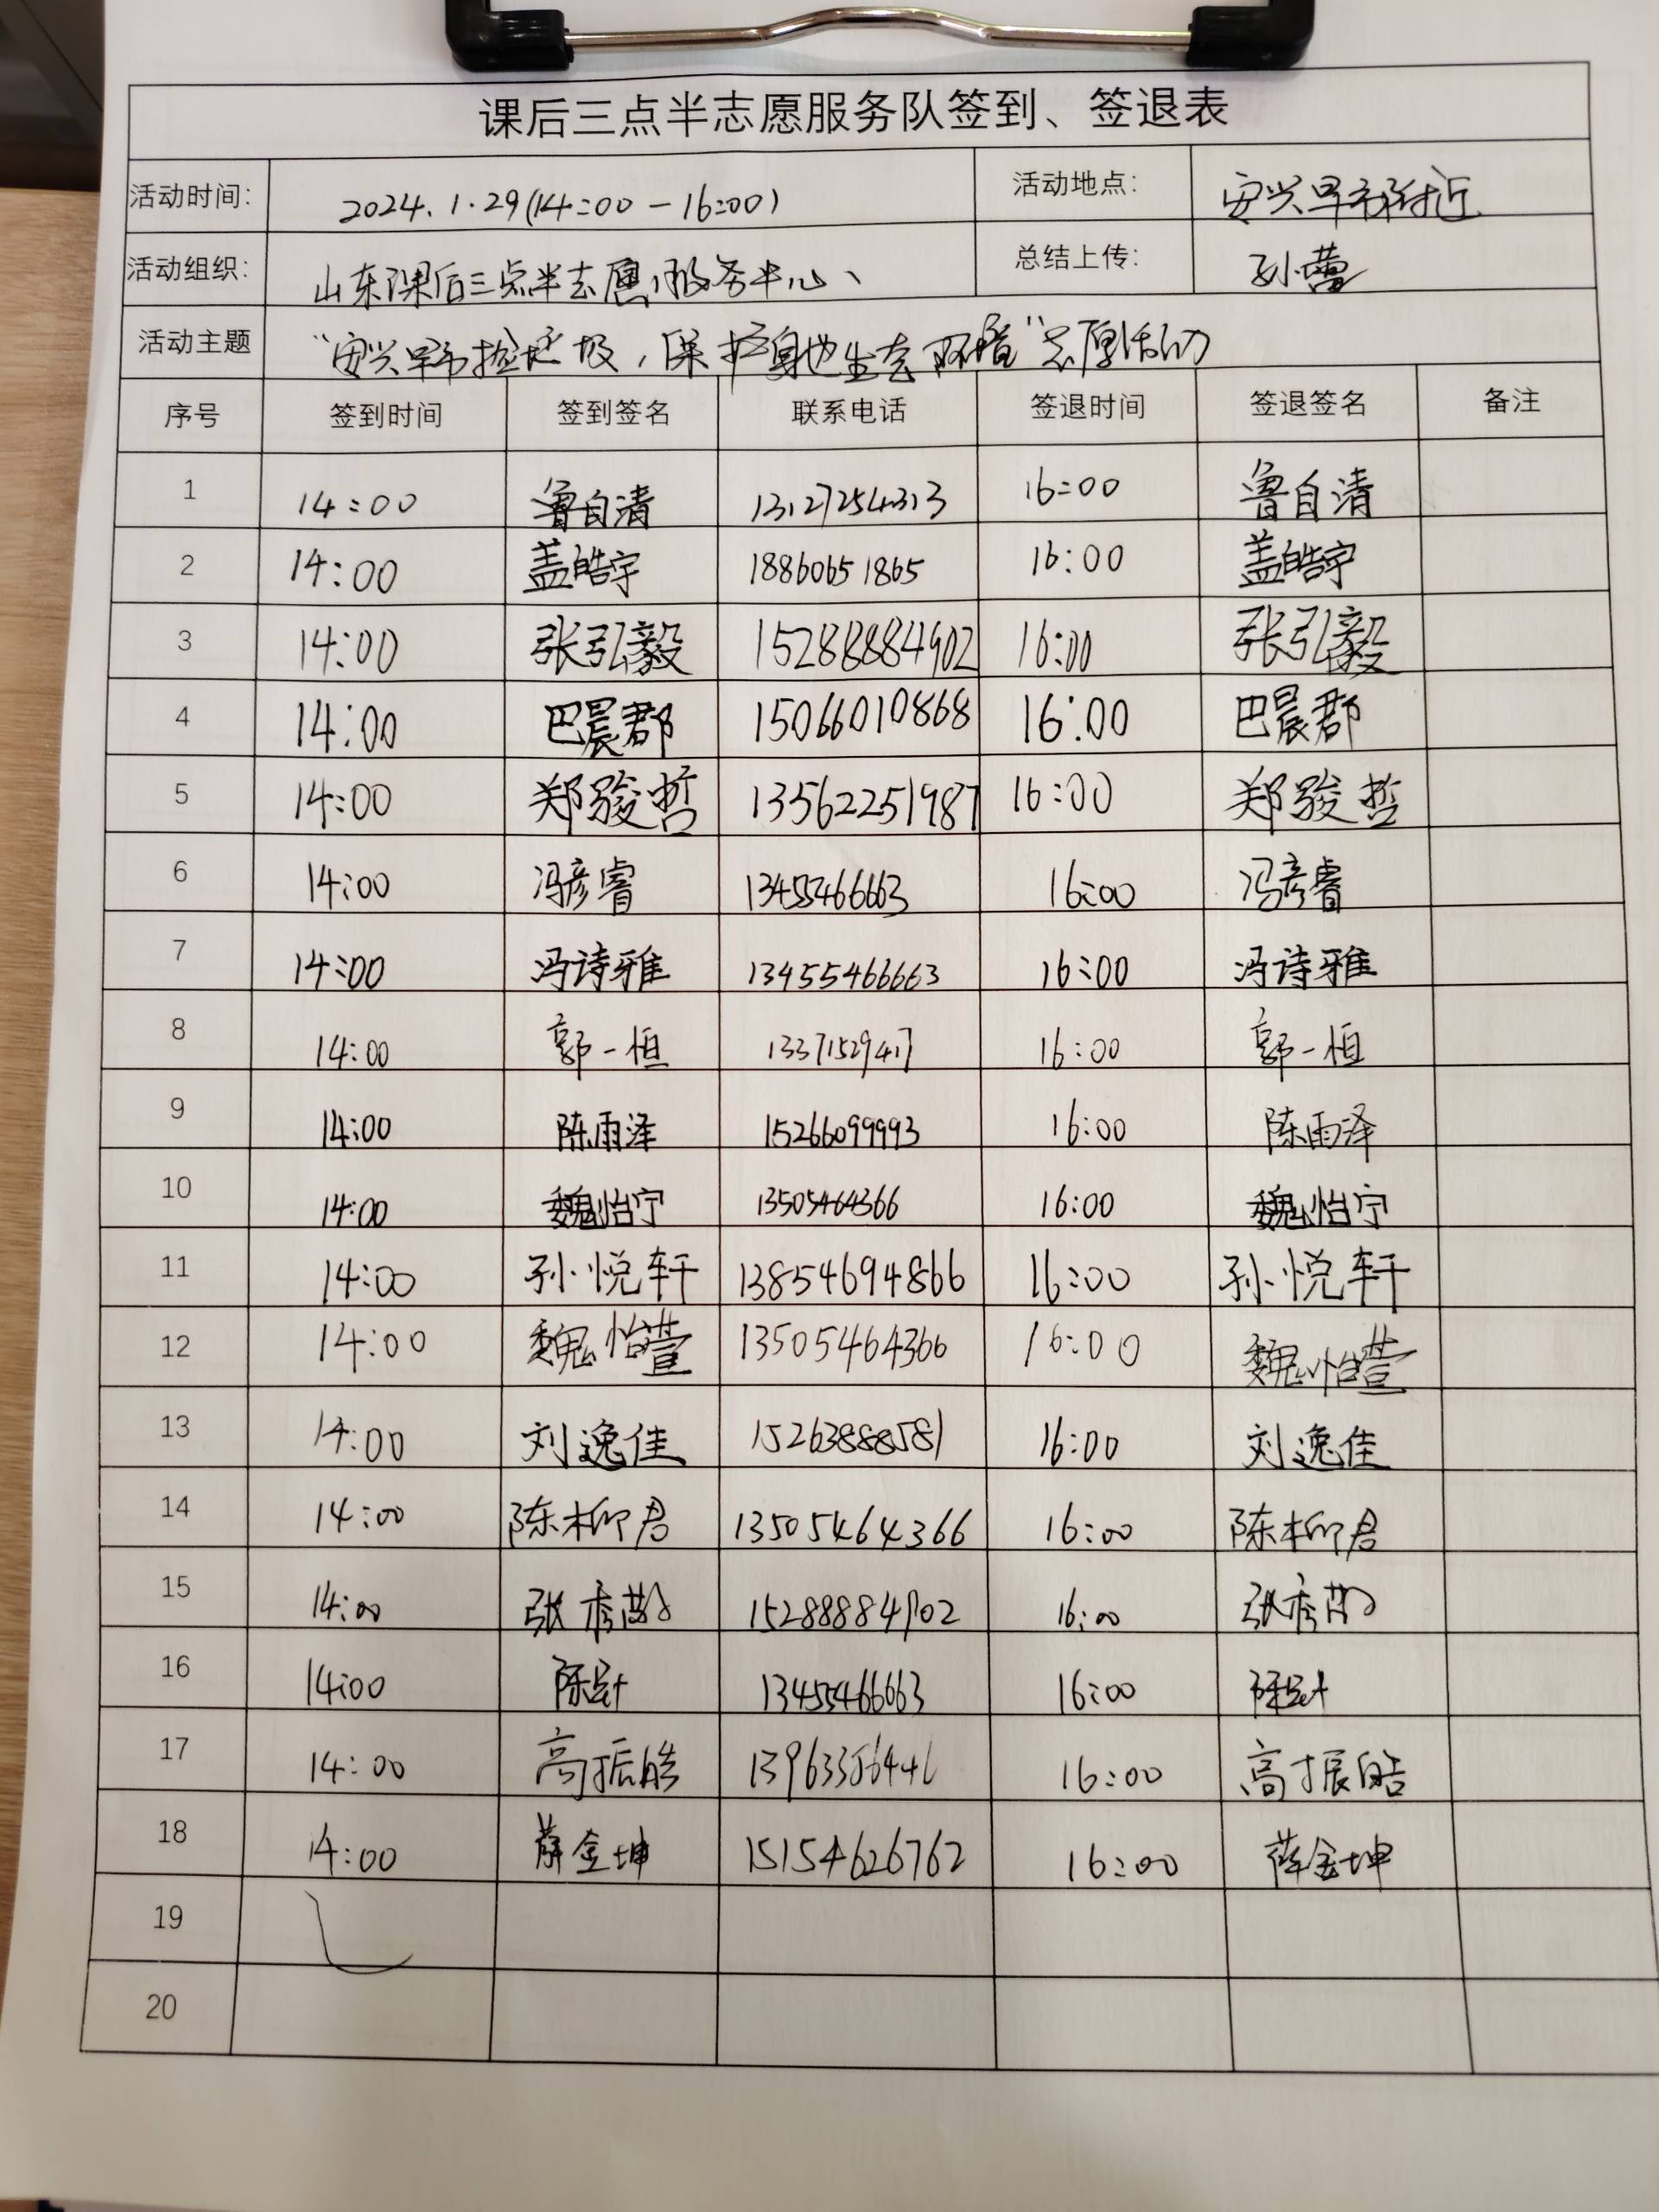 课后三点半志愿服务队签到、签退表
活动时间: 2024.1.29(14:00-16:00) 活动地点: 安兴早市附近
活动组织: 山东课后三点半志愿服务中心 总结上传: 孙蕾
活动主题 "安兴早市捡垃圾,保护身边生态环境"志愿活动
序号 签到时间 签到签名 联系电话 签退时间 签退签名 备注
1 14:00 鲁自清 13127254313 16:00 鲁自清
2 14:00 盖皓宇 18860651865 16:00 盖皓宇
3 14:00 张弘毅 15288884902 16:00 张弘毅
4 14:00 巴晨郡 15066010868 16:00 巴晨郡
5 14:00 郑骏哲 13562251987 16:00 郑骏哲
6 14:00 冯彦睿 13455466663 16:00 冯彦睿
7 14:00 冯诗雅 13455466663 16:00 冯诗雅
8 14:00 郭一恒 13371529417 16:00 郭一恒
9 14:00 陈雨泽 15266099993 16:00 陈雨泽
10 14:00 魏怡宁 13505464366 16:00 魏怡宁
11 14:00 孙悦轩 13854694866 16:00 孙悦轩
12 14:00 魏怡萱 13505464366 16:00 魏怡萱
13 14:00 刘逸佳 15263888581 16:00 刘逸佳
14 14:00 陈柳君 13505464366 16:00 陈柳君
15 14:00 15288884902 16:00
16 14:00 13455466663 16:00
17 14:00 高振皓 16:00 高振皓
18 14:00 薛金坤 15154626762 16:00 薛金坤
19
20